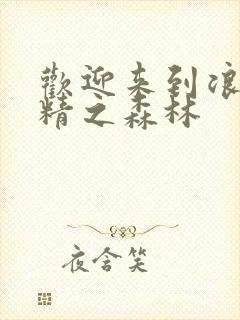 歡迎来到浪
精之森林
夜含笑